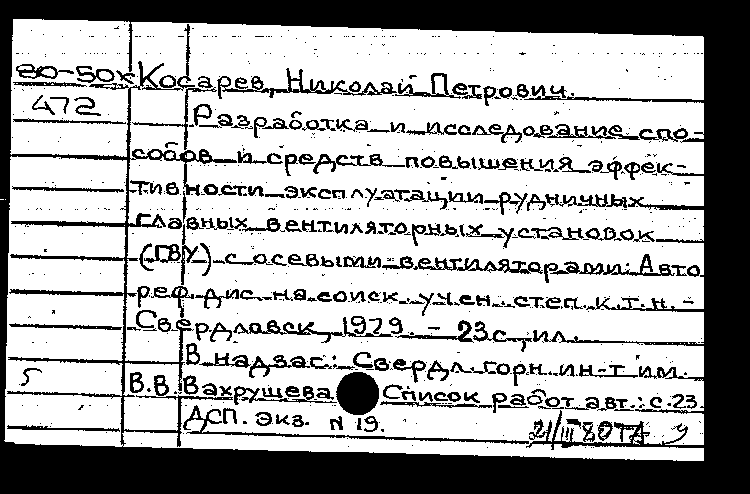 80-50х Косарев, Николай Петрович.
472 Разработка и исследование спо-
собов и средств повышения эффек-
тивности эксплуатации рудничных
главных вентиляторных установок
(ГВУ) с осевыми вентиляторами: Авто
реф. дис. на соиск. учен. степ. к.т.н. -
Свердловск, 1979. - 23с., ил.
В надзаг.: Свердл. горн. ин-т им.
5 В.В. Вахрушева Список работ авт.: с. 23.
ДСП. Экз. N 19. 21/III 80ТА